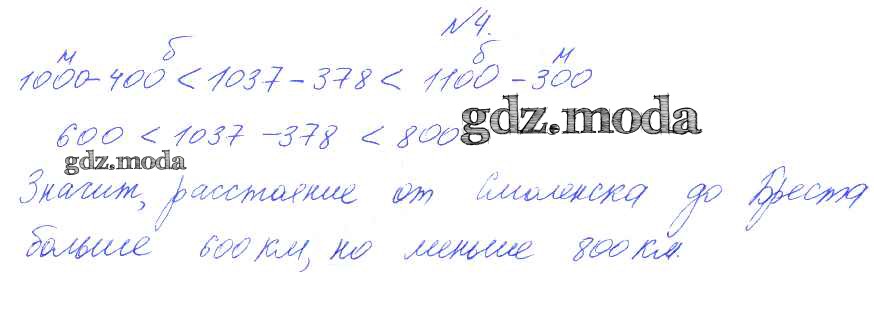 №4.
м б б м
1000-400 < 1037-378 < 1100-300
600 < 1037-378 < 800
gdz.moda
gdz.moda
Значит, расстояние от Смоленска до Бреста
больше 600 км, но меньше 800 км.